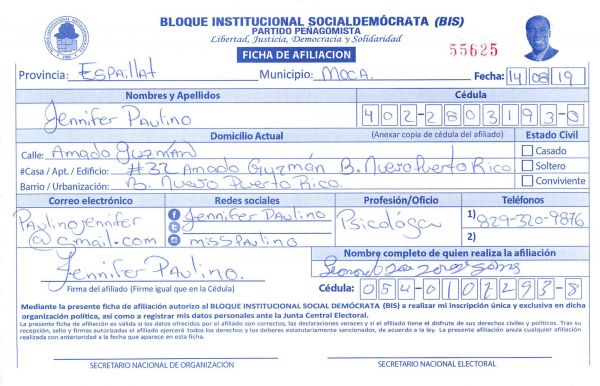 BLOQUE INSTITUCIONAL SOCIALDEMÓCRATA (BIS)
PARTIDO PEÑAGOMISTA
Libertad, Justicia, Democracia y Solidaridad
FICHA DE AFILIACION
55625
Provincia: ESPAILLAT Municipio: MOCA. Fecha: 14 08 19
Nombres y Apellidos Cédula
Jennifer Paulino 402-2803193-0
Domicilio Actual (Anexar copia de cédula del afiliado) Estado Civil
Calle: Amado Guzmán Casado
#Casa / Apt. / Edificio: #32 Amado Guzmán B. Nuevo Puerto Rico Soltero
Barrio / Urbanización: B. Nuevo Puerto Rico. Conviviente
Correo electrónico Redes sociales Profesión/Oficio Teléfonos
Paulinojennifer Jennifer Paulino Psicóloga 1) 829-320-9876
@gmail.com missPaulino 2)
Nombre completo de quien realiza la afiliación
Jennifer Paulino.
Firma del afiliado (Firme igual que en la Cédula) Cédula: 054-0107293-8
Mediante la presente ficha de afiliación autorizo al BLOQUE INSTITUCIONAL SOCIAL DEMÓCRATA (BIS) a realizar mi inscripción única y exclusiva en dicha
organización política, así como a registrar mis datos personales ante la Junta Central Electoral.
La presente ficha de afiliación es válida si los datos ofrecidos por el afiliado son correctos, las declaraciones veraces y si el afiliado tiene el disfrute de sus derechos civiles y políticos. Tras su
recepción, sello y firmas autorizadas el afiliado ejercerá todos los derechos y los deberes estatutariamente sancionados, de acuerdo a la ley. La presente afiliación anula cualquier afiliación
realizada con anterioridad a la fecha que aparece en esta ficha.
SECRETARIO NACIONAL DE ORGANIZACIÓN SECRETARIO NACIONAL ELECTORAL